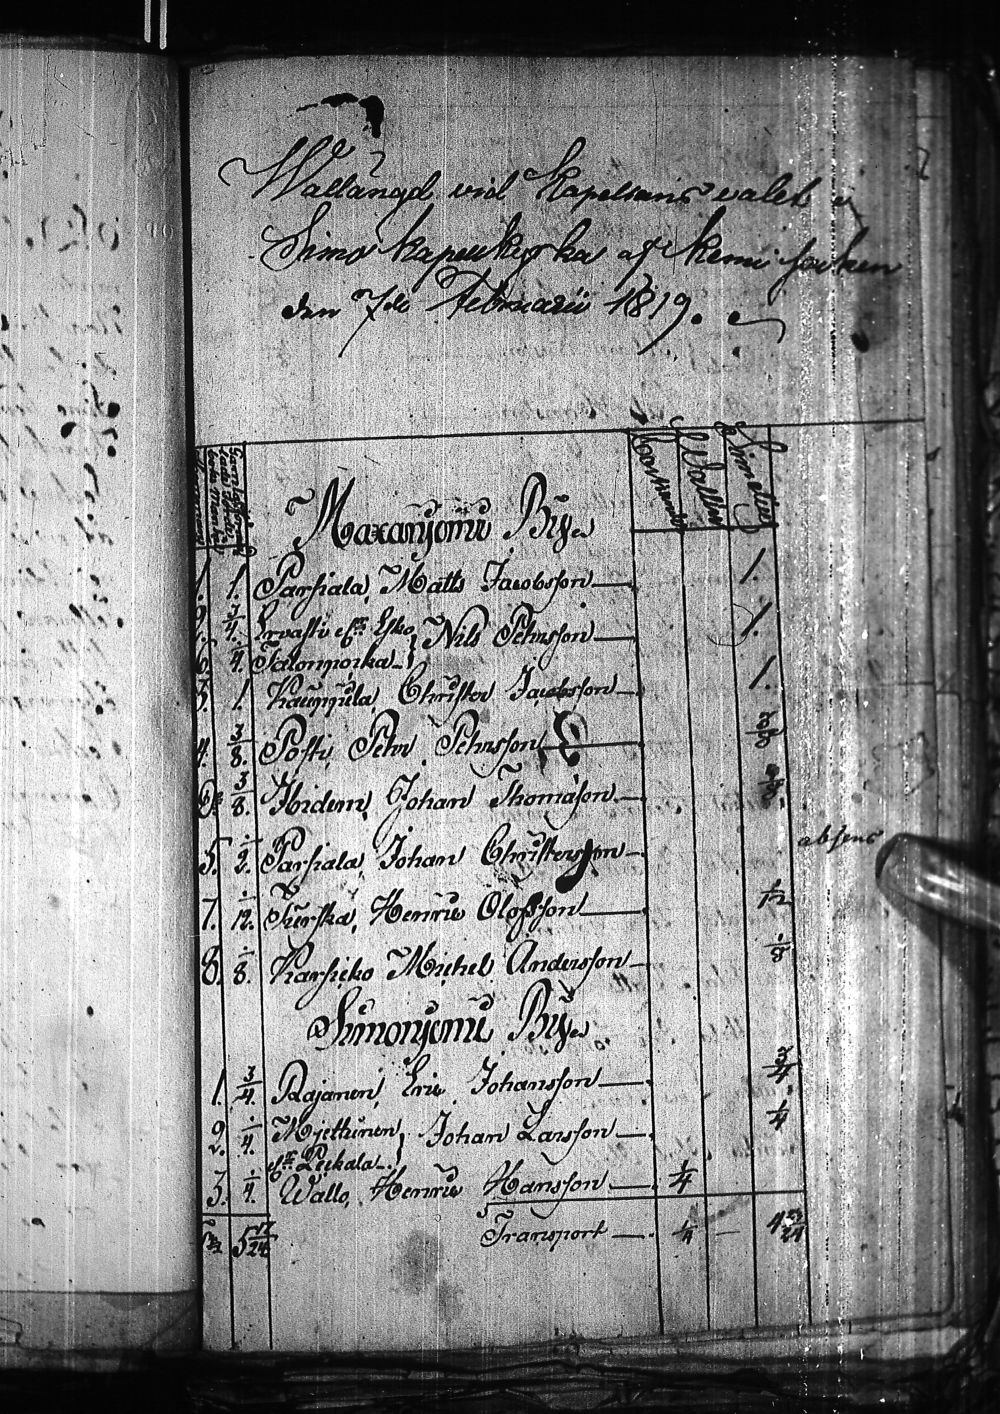 Wallängd vid Kapelians valet i
Simo kapellkyrka af Kemi soken
den 7de Februarii 1819.
Maxanjemi By
1. 1. Parsiala, Matts Jacobsson 1.
2. 3/4. Ervasti eft. Esko Nils Pehrsson 1.
6. 1/4. Talonpoika
3. 1. Kauppila Christer Jacobsson 1.
4. 3/8. Posti Pehr Pehrsson 3/8
3/8. Hiden, Johan Thomasson 3/8.
5. 1/2. Parsiala, Johan Christersson absens
7. 1/12. Turska, Henric Olofsson 1/12
8. 1/8. Karsicko Michel Andersson 1/8
Simonjemi By
1. 3/4. Rajanen, Eric Johansson 3/4.
2. 1/4. Mjettunen, Johan Larsson 1/4
eft. Pickala
3. 1/4. Wallo, Henric Hansson 1/4
5 17/24 Transport 1/4 4 23/24